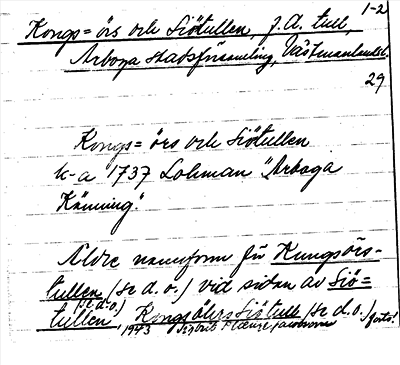 1-2
Kongs=örs och Siötullen, f.d. tull,
Arboga stadsförsamling, Västmanland.
29
Kongs=örs och Siötullen
k-a 1737 Lohman "Arboga
Känning".
Äldre namnform för Kungsörs-
tullen (se d.o.) vid sidan av Siö=
tullen (se d.o.), Kongsöhrs Siötull (se d.o.) forts!
1943